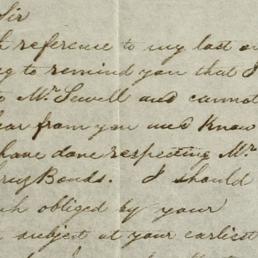 Sir
reference to my last
to remind you that I
Mr. Sewell and cannot
from you and Know
have done respecting Mr.
Bonds. I should
obliged by your
subject at your earliest